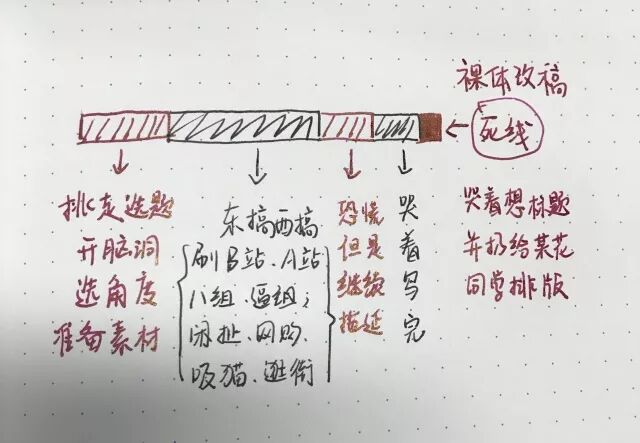 裸体改稿
死线
挑定选题
开脑洞
选角度
准备素材
东搞西搞
刷B站、A站
八组、逼组;
闲扯、网购、
吸猫、逛街
恐慌
但是
继续
拖延
哭
着
写
完
哭着想标题
并扔给某花
同学排版